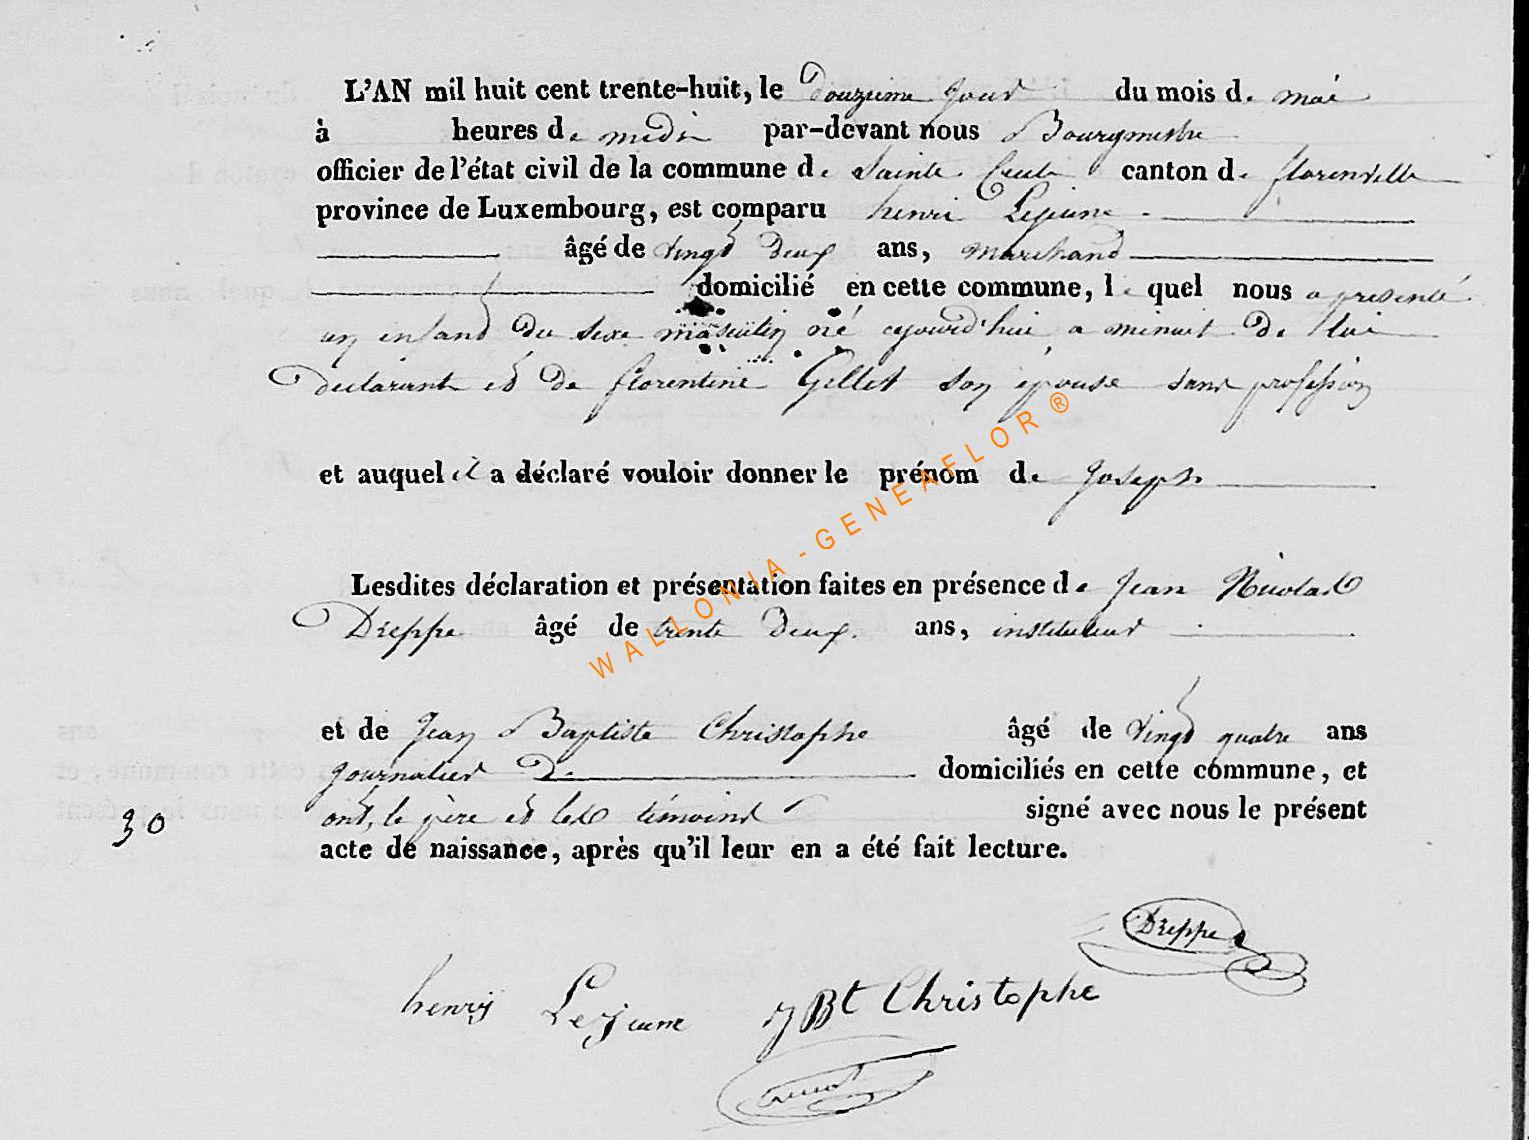 L'AN mil huit cent trente-huit, le douzieme jour du mois de mai
à heures de midi par-devant nous Bourgmestre
officier de l'état civil de la commune de Sainte Cecile canton de florenville
province de Luxembourg, est comparu henri Lejeune
âgé de vingt deux ans, marchand
domicilié en cette commune, le quel nous a presenté
un enfant du sexe masculin né cejourd'hui a minuit de lui
declarant et de florentine Gillet son épouse sans profession
et auquel il a déclaré vouloir donner le prénom de Joseph
Lesdites déclaration et présentation faites en présence de Jean Nicolas
Dreppe âgé de trente deux ans, instituteur
et de Jean Baptiste Christophe âgé de vingt quatre ans
journalier de domiciliés en cette commune, et
ont, le père et les témoins signé avec nous le présent
30
acte de naissance, après qu'il leur en a été fait lecture.
Dreppe
henry Lejeune JBt Christophe
WALLONIA - GENEAFLOR ®